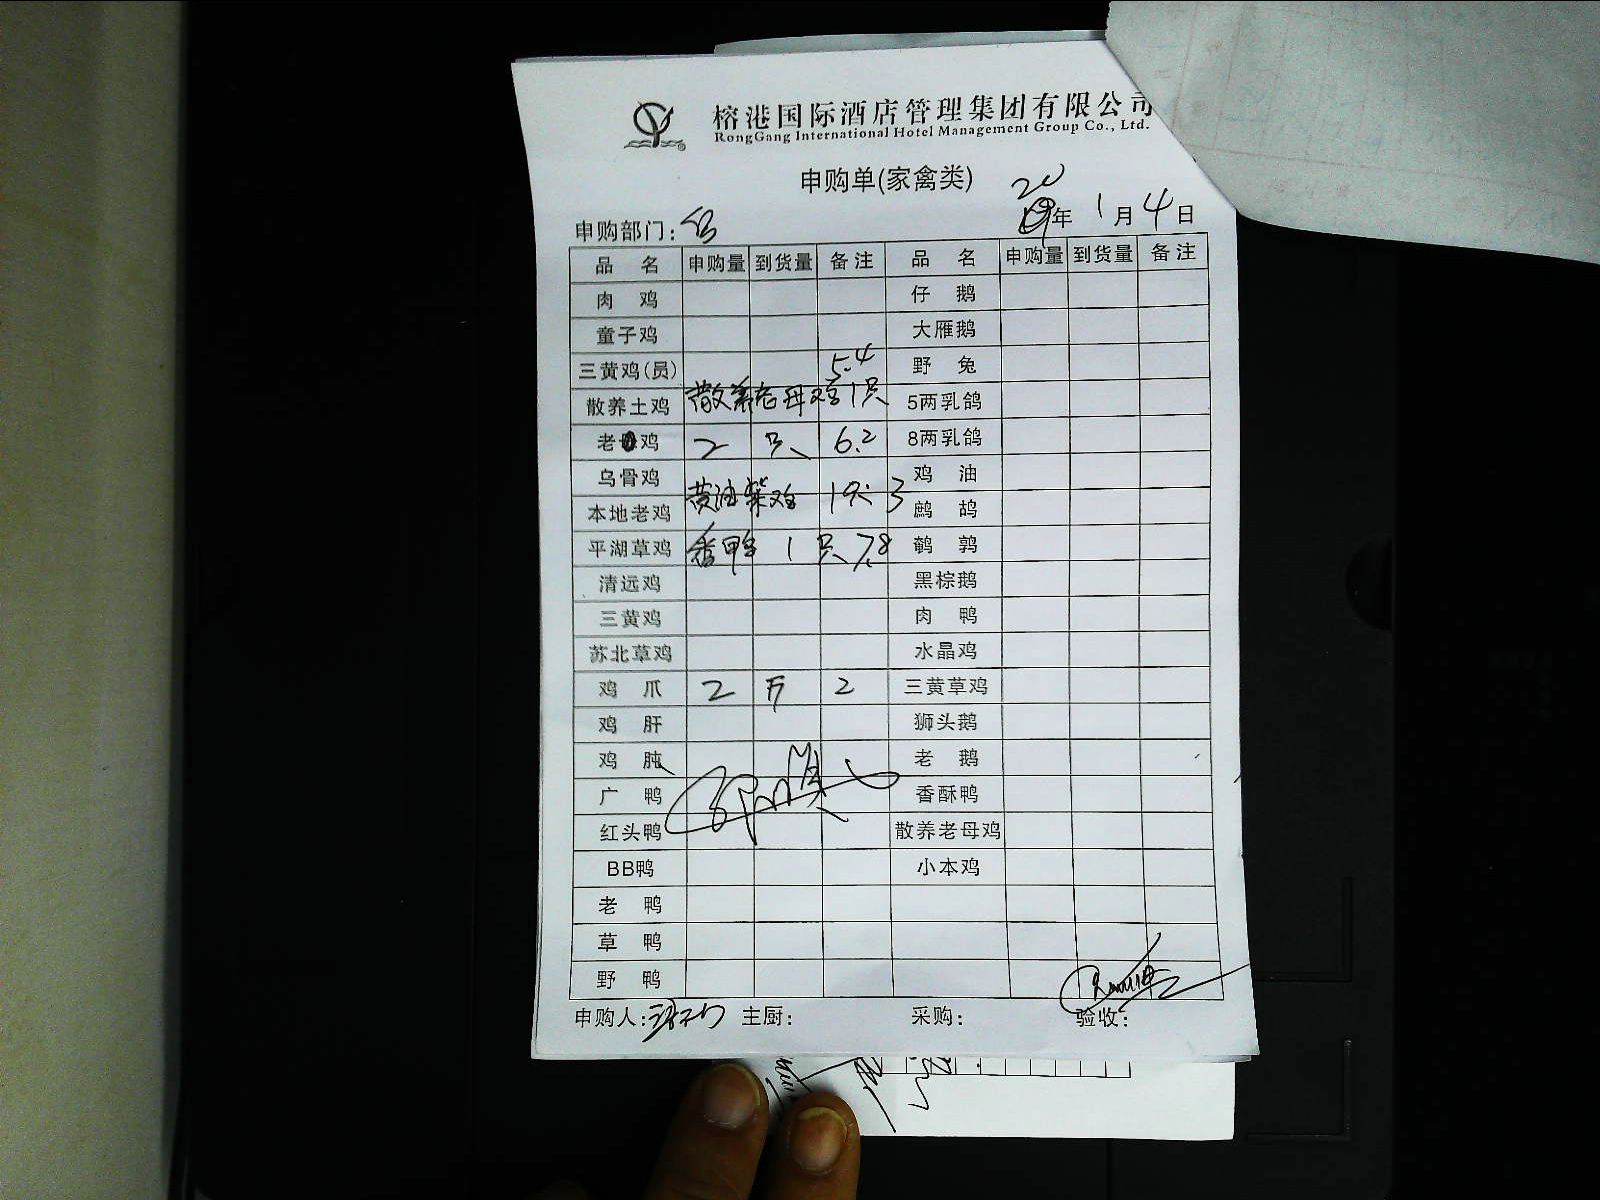 榕港国际酒店管理集团有限公司
RongGang International Hotel Management Group Co., Ltd.
申购单(家禽类)
20
申购部门: 年 1月4日
品 名 申购量 到货量 备注 品 名 申购量 到货量 备注
肉 鸡 仔 鹅
童子鸡 大雁鹅
三黄鸡(员) 5.4 野 兔
散养土鸡 散养老母鸡1只 5两乳鸽
老 鸡 2 只 6.2 8两乳鸽
乌骨鸡 鸡 油
黄油柴鸡 1只 3
本地老鸡 鹧 鸪
平湖草鸡 番鸭 1 只 7.8 鹌 鹑
清远鸡 黑棕鹅
三黄鸡 肉 鸭
苏北草鸡 水晶鸡
鸡 爪 2 斤 2 三黄草鸡
鸡 肝 狮头鹅
鸡 肫 老 鹅
广 鸭 香酥鸭
红头鸭 散养老母鸡
BB鸭 小本鸡
老 鸭
草 鸭
野 鸭
申购人: 主厨: 采购: 验收: